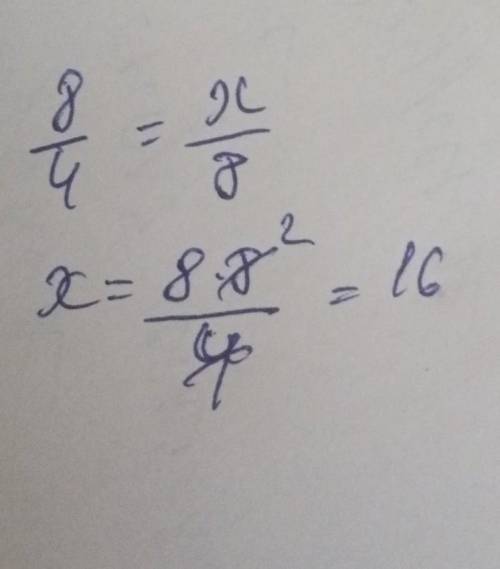 8/4 = x/8
x = 8·8²/4 = 16